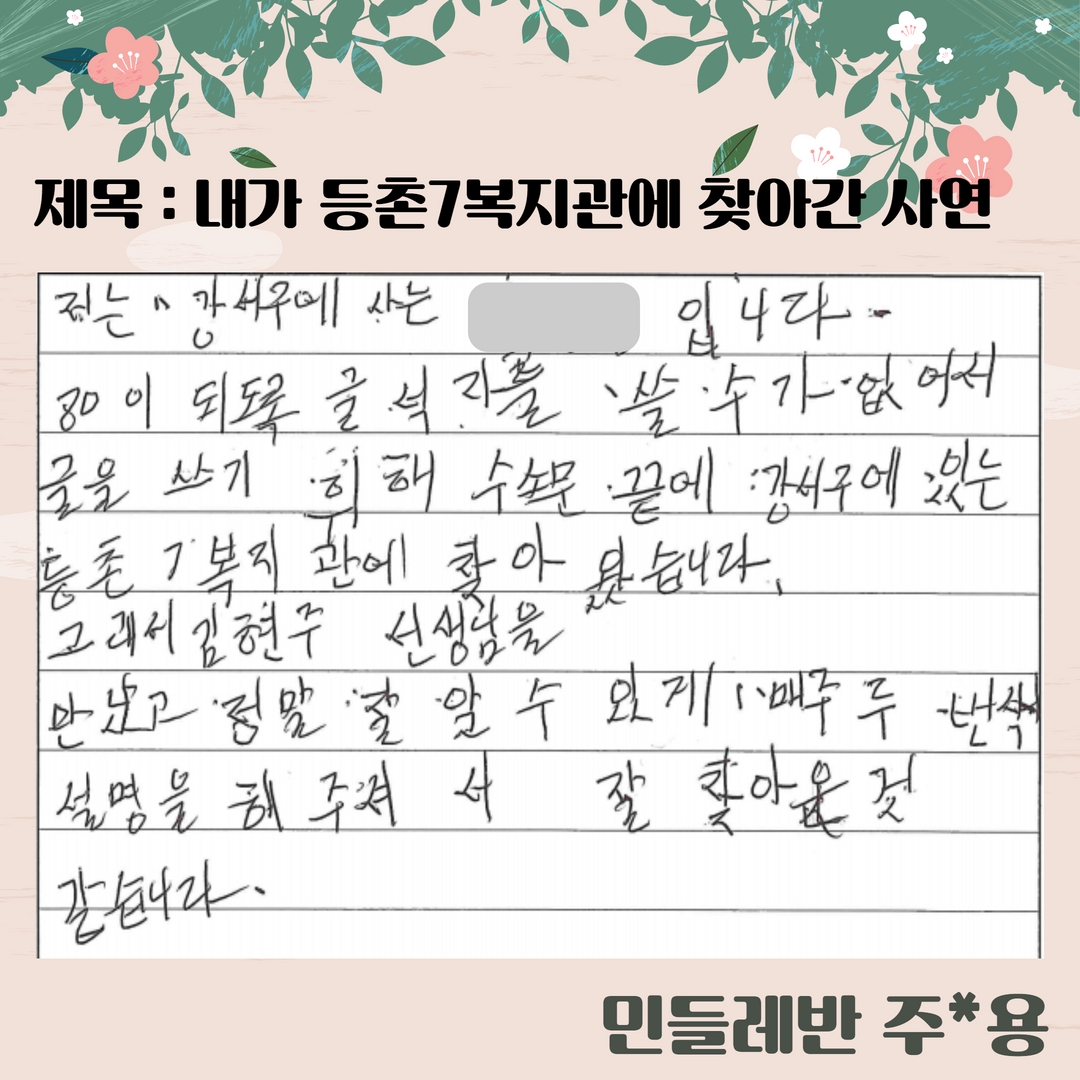 제목 : 내가 등촌7복지관에 찾아간 사연
저는 강서구에 사는 입니다.
80이 되도록 글 석 자를 쓸 수가 없어서
글을 쓰기 위해 수소문 끝에 강서구에 있는
등촌 7복지관에 찾아 왔습니다.
그래서 김현주 선생님을
만났고 정말 잘 알 수 있게 매주 두 번씩
설명을 해 주져서 잘 찾아온 것
같습니다.
민들레반 주*용